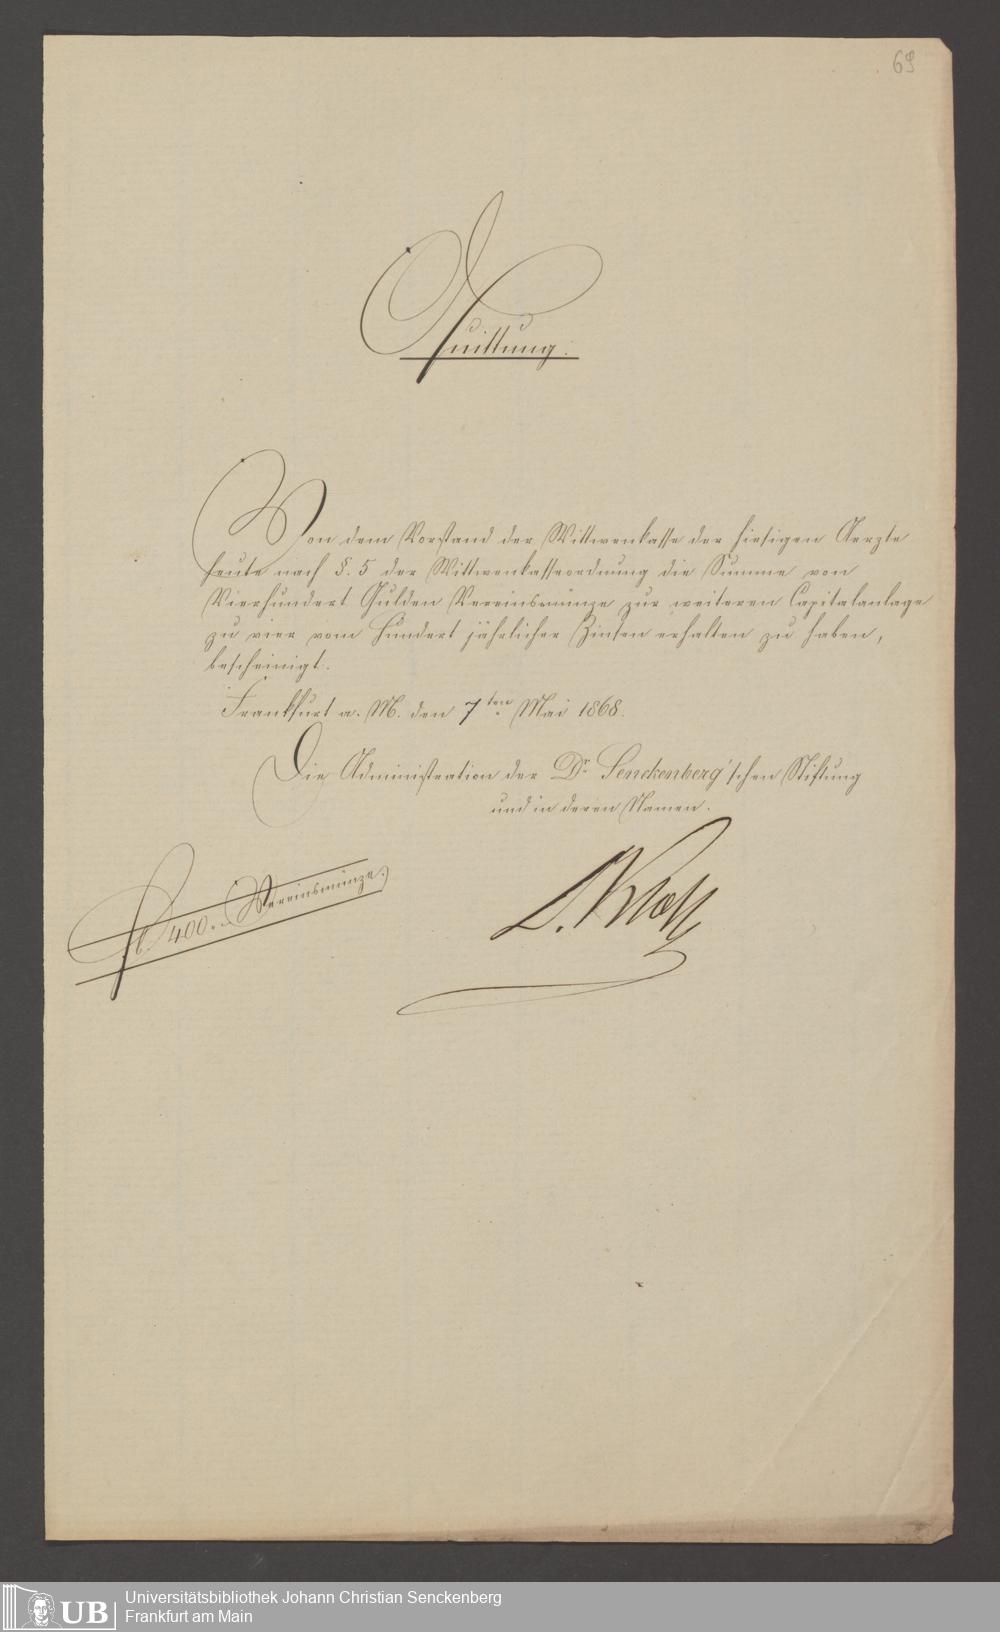 69
Quittung.
Von dem Vorstand der Wittwenkasse der hiesigen Aerzte
heute nach §. 5 der Wittwenkasseordnung die Summe von
Vierhundert Gulden Vereinsmünze zur weiteren Capitalanlage
zu vier vom Hundert jährlicher Zinsen erhalten zu haben,
bescheinigt.
Frankfurt a. M. den 7ten Mai 1868.
Die Administration der Dr. Senckenberg'schen Stiftung
und in deren Namen.
fl 400. Vereinsmünze.
Universitätsbibliothek Johann Christian Senckenberg
Frankfurt am Main
UB